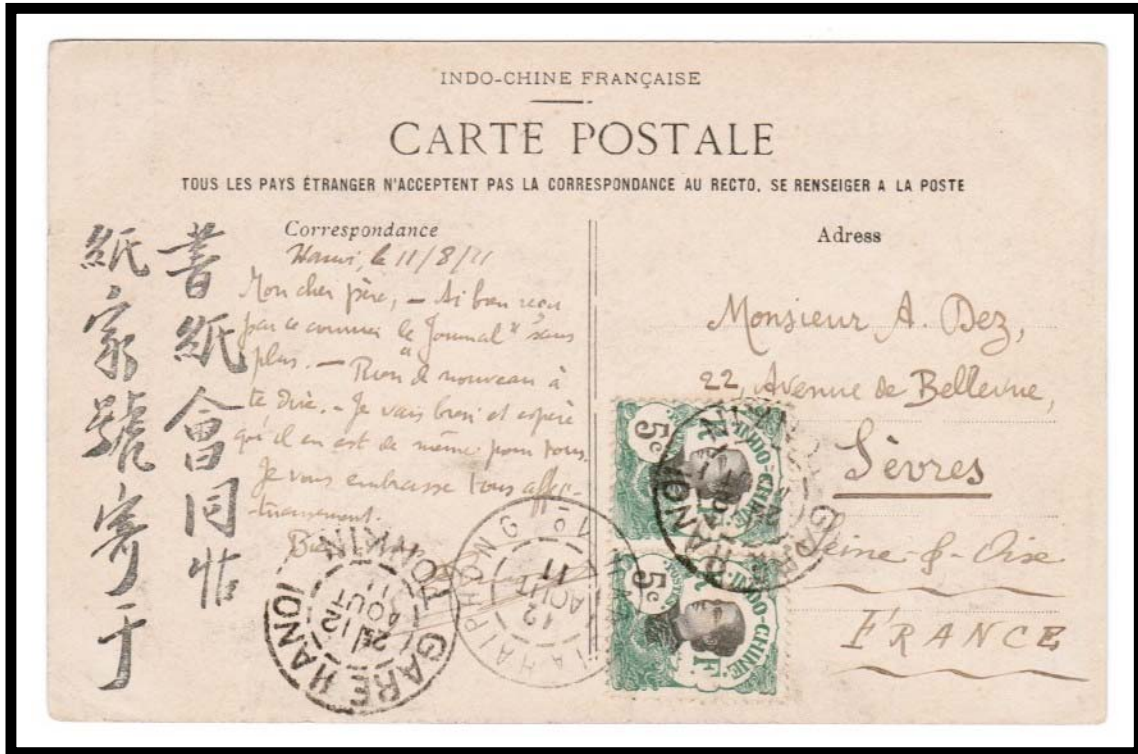 INDO-CHINE FRANÇAISE
CARTE POSTALE
TOUS LES PAYS ÉTRANGER N'ACCEPTENT PAS LA CORRESPONDANCE AU RECTO, SE RENSEIGER A LA POSTE
書紙會同
紙家號寄于
Correspondance
Hanoi, le 11/8/11
Mon cher père, – Ai bien reçu
par ce courrier le "Journal" sans
plus. – Rien de nouveau à
te dire. – Je vais bien et espère
qu'il en est de même pour tous.
Je vous embrasse tous affec-
-tueusement.
Adress
Monsieur A. Dez,
22, Avenue de Bellevue,
Sèvres
Seine-&-Oise
FRANCE
5c
INDO-CHINE
RF
5c
INDO-CHINE.
RF
GARE HANOI
TONKIN
2E
12
AOUT
11
HAIPHONG
12
AOUT
11
GARE HANOI